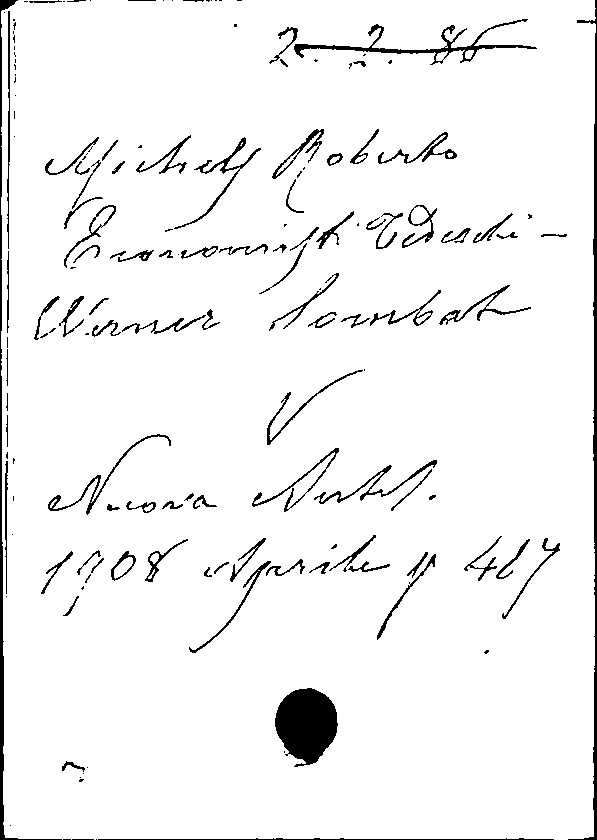 2. 2. 86
Michels Roberto
Economisti Tedeschi -
Werner Sombat
V
Nuova Antol.
1908 Aprile p 487